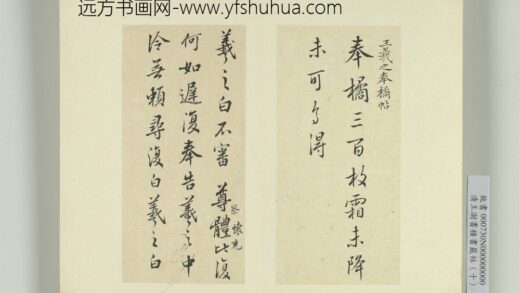 远方书画网-www.yfshuhua.com
王羲之奉橘帖
奉橘三百枚霜未降
未可多得
羲之白不審 尊體比復
察 懐充
何如遲復奉告羲之中
冷無賴尋復白羲之白
故書 000730N000000000
清王澍書積書巖帖(十)